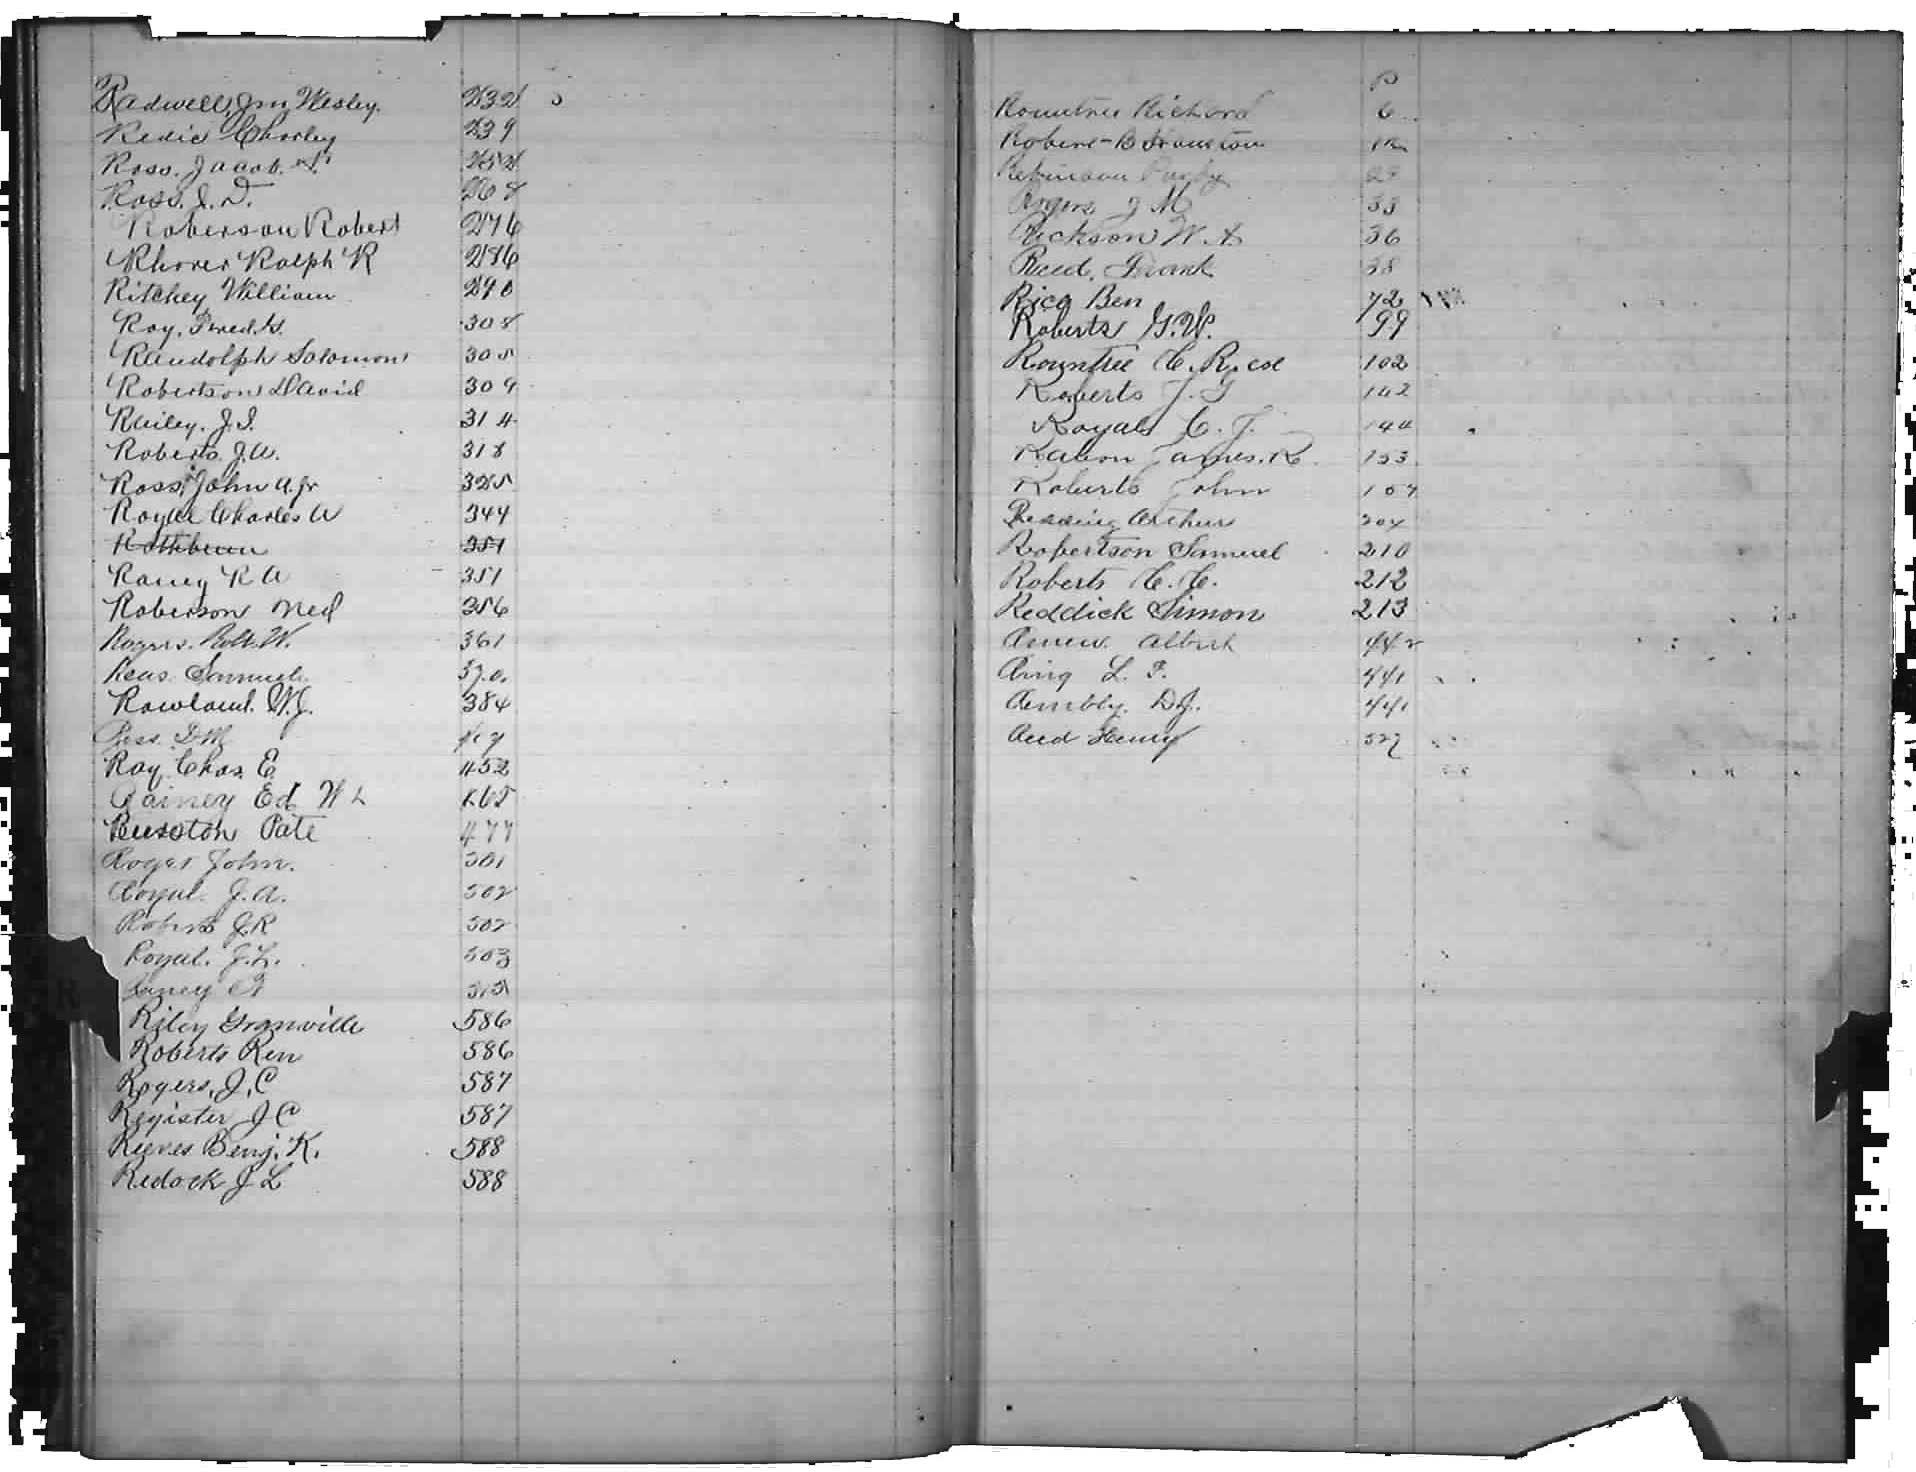 Radwell, Jno Wesley. 232
Redic Charley 239
Ross. Jacob. 252
Ross. J. D. 268
Roberson Robert 276
Rhorer Ralph R 286
Ritchey William 290
Roy. Fred. 308
Randolph Solomon 305
Robertson David 309
Railey. J. I. 314
Roberts. J. A. 318
Ross, John A. Jr 325
Charles A 344
Rathbun 351
Raney R A 351
Roberson Ned 356
Rogers. Robt. W. 361
Samuel. 370.
Rowland. W. J. 384
D M
Roy Chas. E. 452
Rainey Ed W L 465
Pate 477
Roger John. 501
Royal. J. A. 502
Roberts J R 502
Royal. J. L. 503
Riley Granville 586
Roberts Ren 586
Rogers, J, C 587
Register J C 587
Reeves Benj. K. 588
Redock J L 588
P
Rountree Richard 6
Houston 12
Robinson
Rogers J M 33
Rickson W. A 36
Reed, Frank 38
Rice Ben 72
Roberts G. W. 99
Rountree C. R. col 102
Roberts J. G 142
Royals C. J. 144
James. R 153
Roberts John 157
Redding Arthur 204
Robertson Samuel 210
Roberts C. C. 212
Reddick Simon 213
Albert 442
Ring L. F. 441
D. J. 441
Reed Henry 527